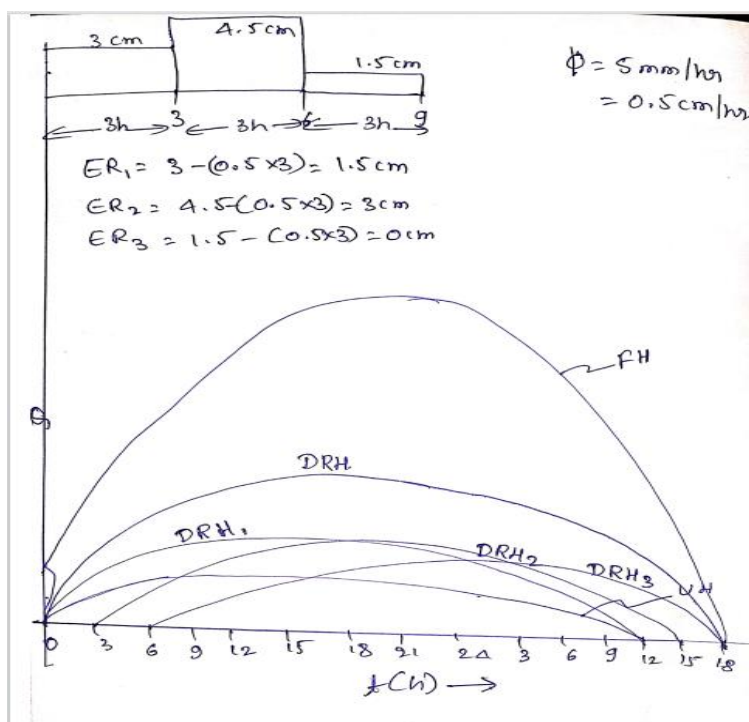 3 cm
4.5cm
1.5cm
ϕ = 5mm/hr
= 0.5cm/hr
3h 3 3h 6 3h 9
ER₁ = 3 - (0.5×3) = 1.5cm
ER₂ = 4.5-(0.5×3) = 3cm
ER₃ = 1.5 - (0.5×3) = 0cm
FH
DRH
DRH₁
DRH₂
DRH₃
UH
0 3 6 9 12 15 18 21 24 3 6 9 12 15 18
t(h) →